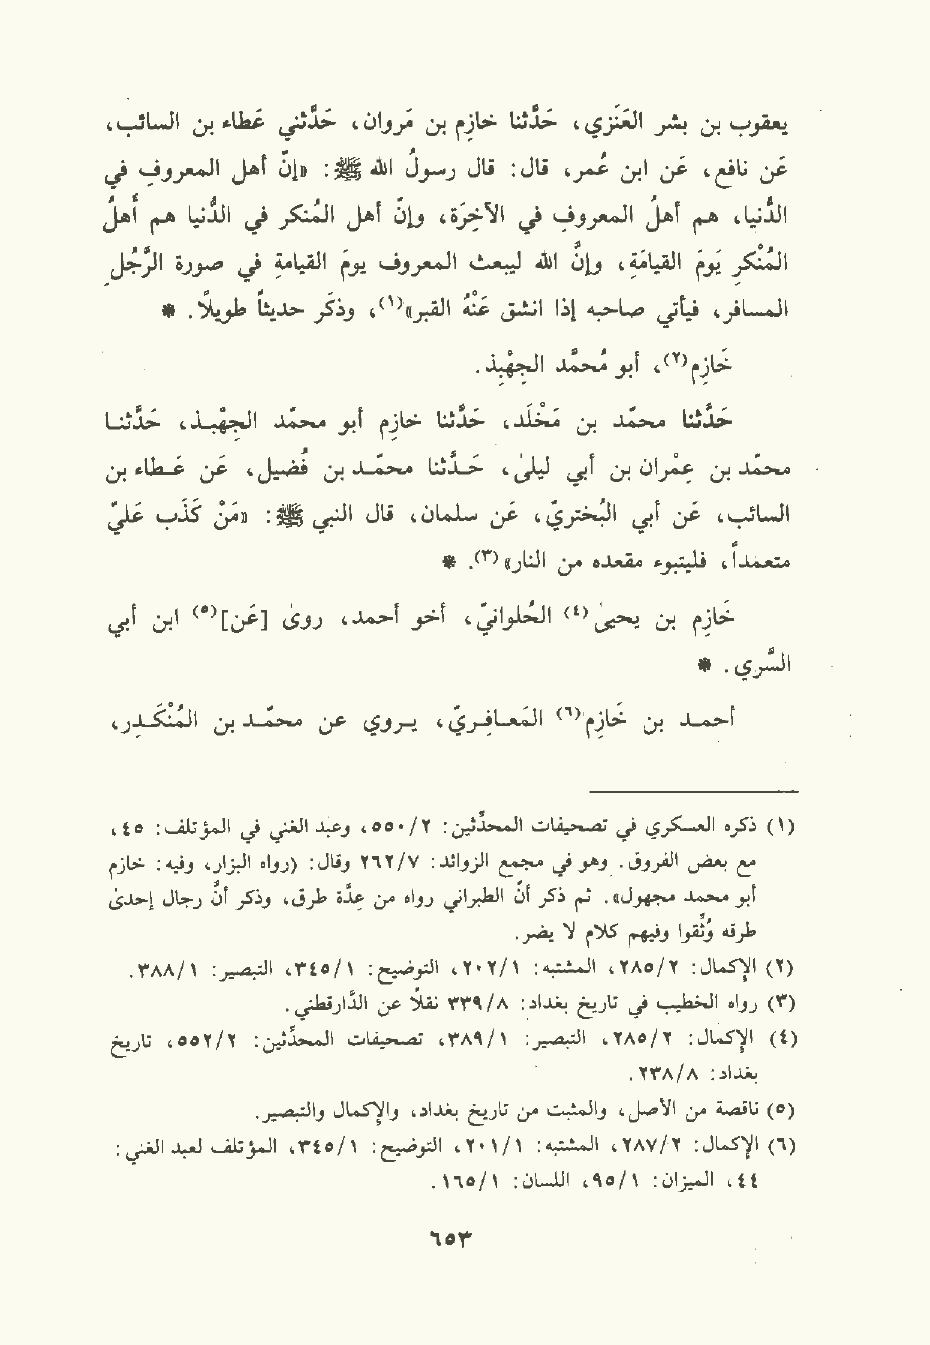 يعقوب بن بشر العَنَزي، حَدَّثنا خازِم بن مَروان، حَدَّثني عَطاء بن السائب،
عَن نافع، عَن ابن عُمر، قال: قال رسولُ الله ﷺ: «إنّ أهل المعروف في
الدُّنيا، هم أهلُ المعروف في الآخِرَة، وإنّ أهل المُنكر في الدُّنيا هم أهلُ
المُنْكرِ يَومَ القيامَةِ، وإنّ الله ليبعث المعروف يومَ القيامة في صورة الرَّجُلِ
المسافر، فيأتي صاحبه إذا انشق عَنْهُ القبر»(١)، وذكَر حديثاً طويلاً. *
خَازِم(٢)، أبو مُحمَّد الجِهْبِذ.
حَدَّثنا محمّد بن مَخْلَد، حَدَّثنا خازِم أبو محمّد الجِهْبِذ، حَدَّثنا
محمّد بن عِمْران بن أبي ليلىٰ، حَدَّثنا محمّد بن فُضيل، عَن عَطاء بن
السائب، عَن أبي البُختريّ، عَن سلمان، قال النبي ﷺ: «مَنْ كَذَب عَليّ
متعمّداً، فليتبوء مقعده من النار»(٣). *
خَازِم بن يحيىٰ(٤) الحُلوانيّ، أخو أحمد، روىٰ [عَن](٥) ابن أبي
السَّري. *
أحمد بن خَازِم(٦) المَعَافِريّ، يروي عن محمّد بن المُنْكَدِر،
(١) ذكره العسكري في تصحيفات المحدِّثين: ٢/٥٥٠، وعبد الغني في المؤتلف: ٤٥،
مع بعض الفروق. وهو في مجمع الزوائد: ٧/٢٦٢ وقال: (رواه البزار، وفيه: خازم
أبو محمد مجهول». ثم ذكر أنّ الطبراني رواه من عدّة طرق، وذكر أنّ رجال إحدىٰ
طرقه وُثِّقوا وفيهم كلام لا يضر.
(٢) الإكمال: ٢/٢٨٥، المشتبه: ١/٢٠٢، التوضيح: ١/٣٤٥، التبصير: ١/٣٨٨.
(٣) رواه الخطيب في تاريخ بغداد: ٨/٣٣٩ نقلاً عن الدّارقطني.
(٤) الإكمال: ٢/٢٨٥، التبصير: ١/٣٨٩، تصحيفات المحدِّثين: ٢/٥٥٢، تاريخ
بغداد: ٨/٢٣٨.
(٥) ناقصة من الأصل، والمثبت من تاريخ بغداد، والإكمال والتبصير.
(٦) الإكمال: ٢/٢٨٧، المشتبه: ١/٢٠١، التوضيح: ١/٣٤٥، المؤتلف لعبد الغني:
٤٤، الميزان: ١/٩٥، اللسان: ١/١٦٥.
٦٥٣